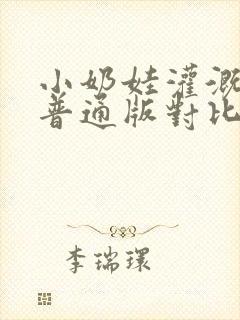 小奶娃灌溉
普通版對比
李瑞環